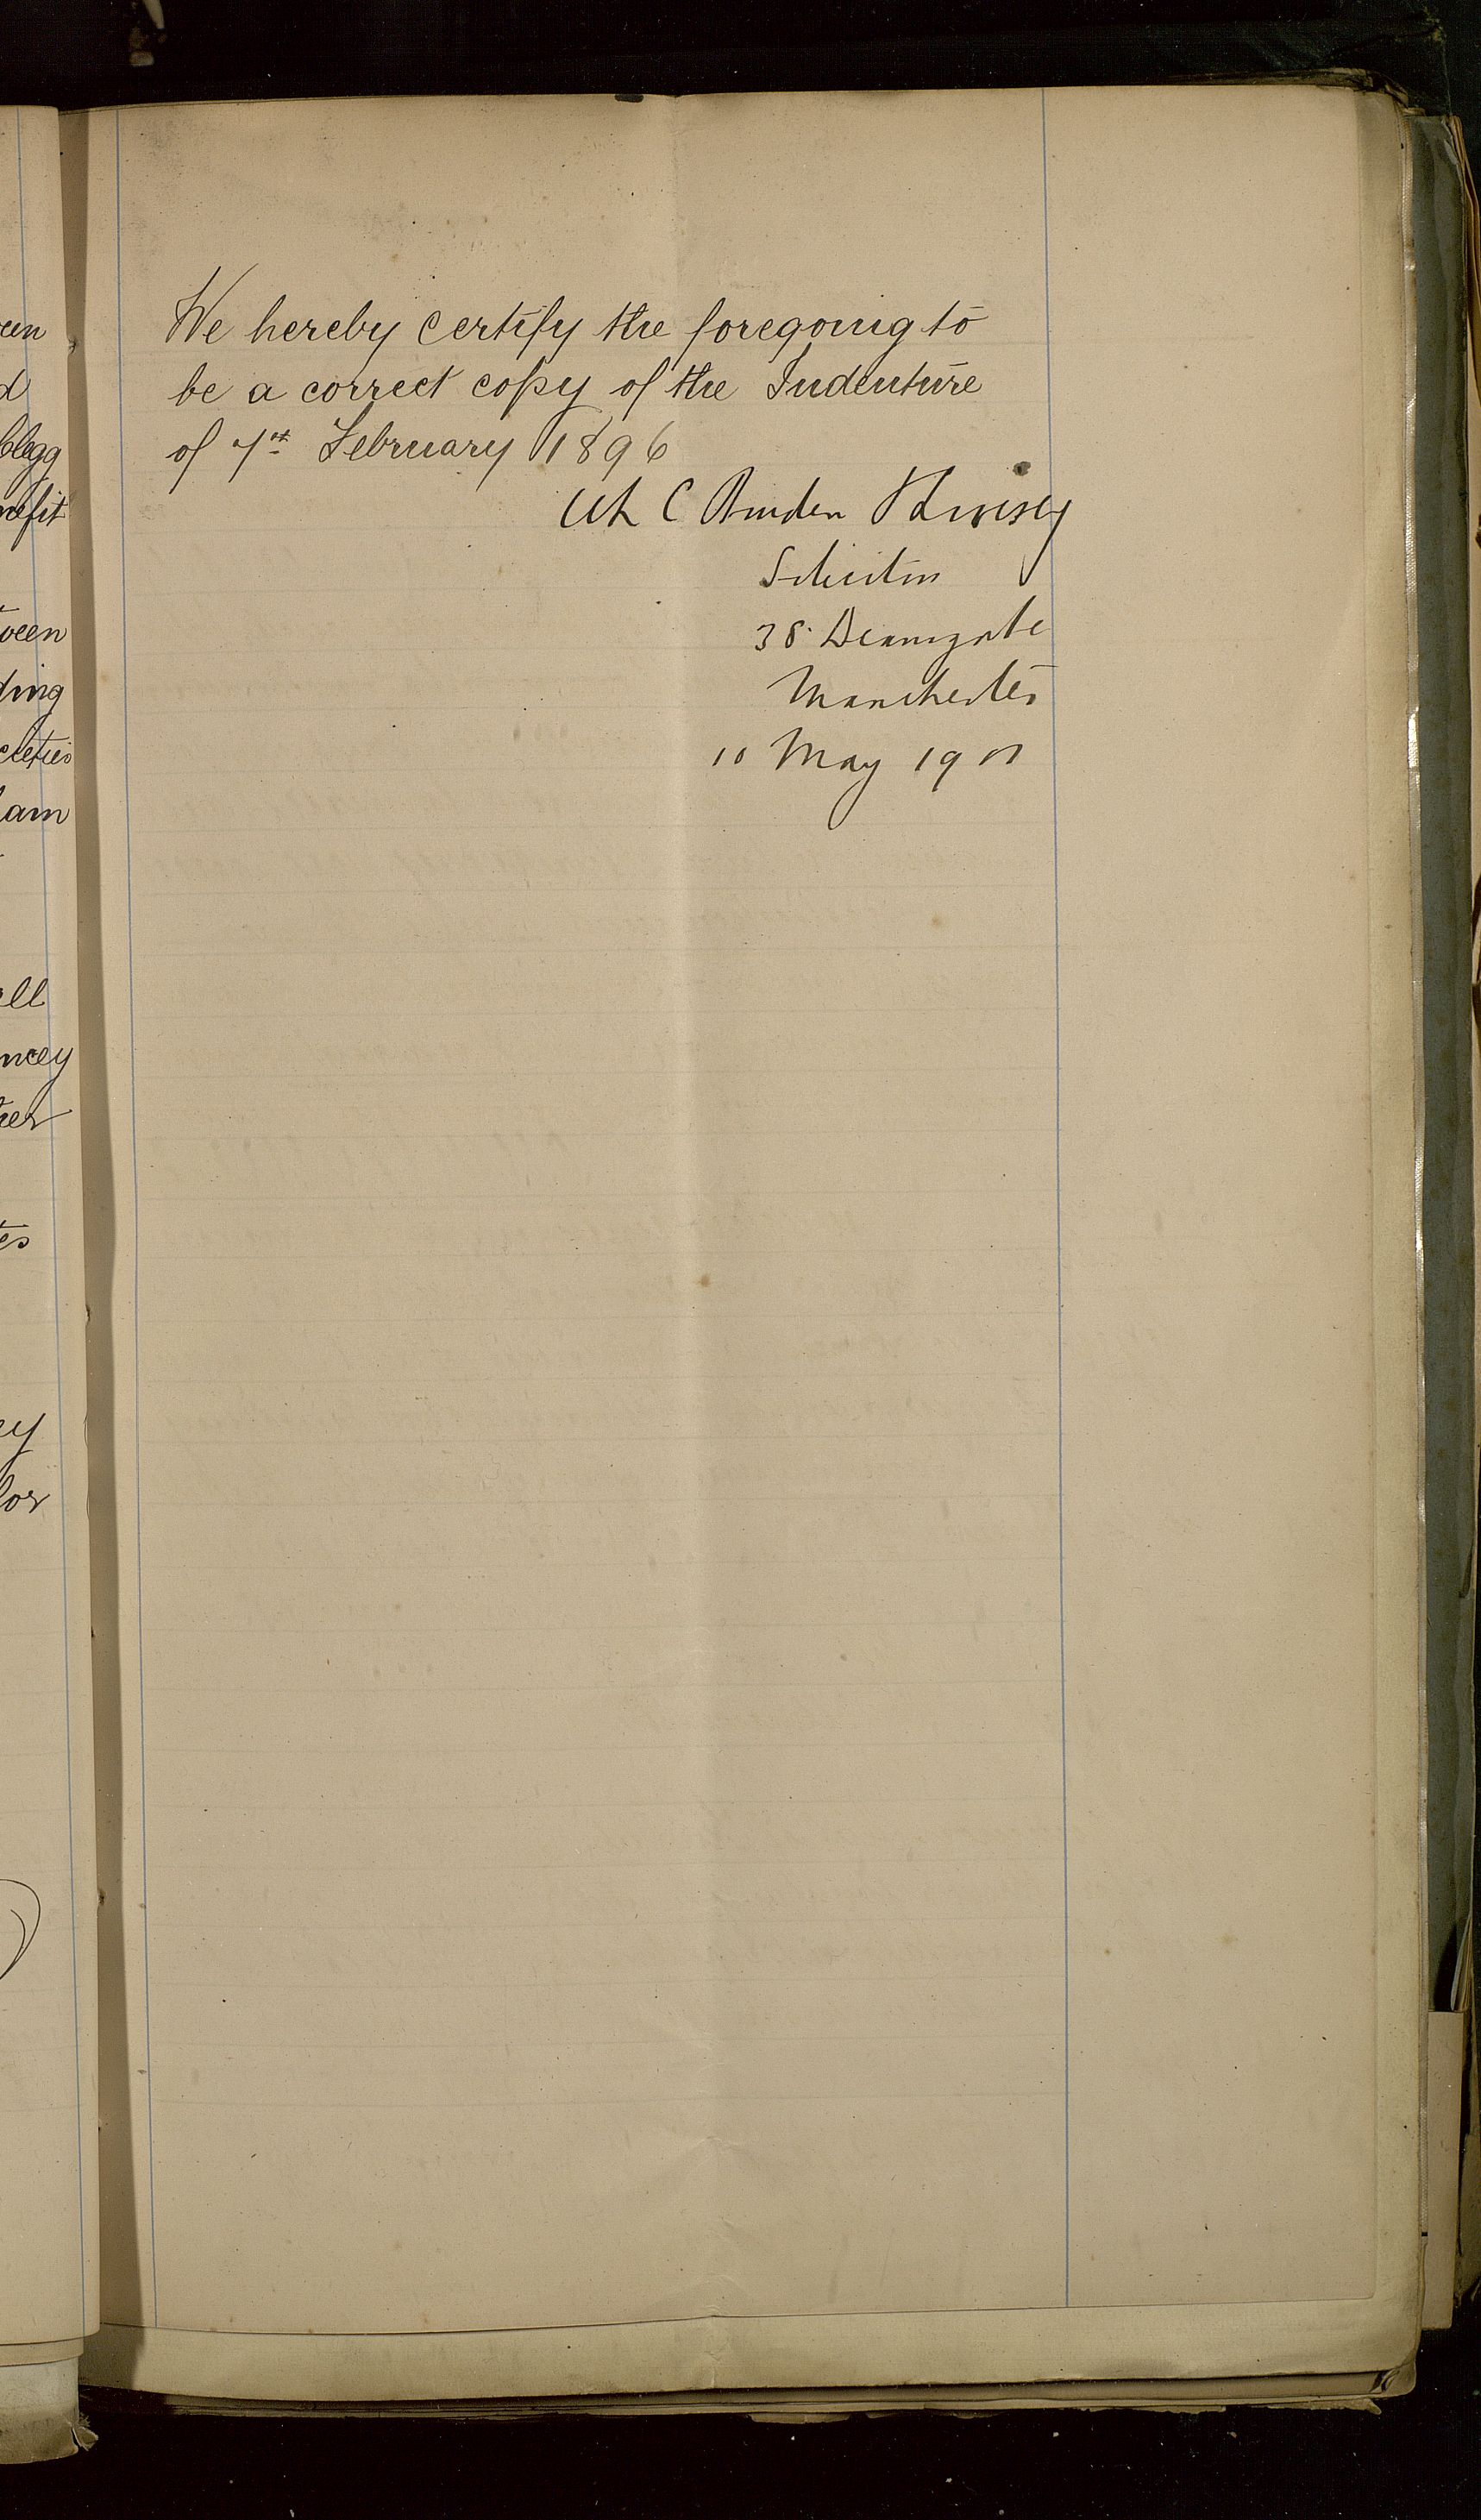 een
d
Clegg
nefit
ween
ding
cieties
ham
ell
ncey
her
tes
ey
lor
We hereby certify the foregoing to
be a correct copy of the Indenture
of 7th February 1896
C
Solicitor
38 Deansgate
Manchester
10 May 19